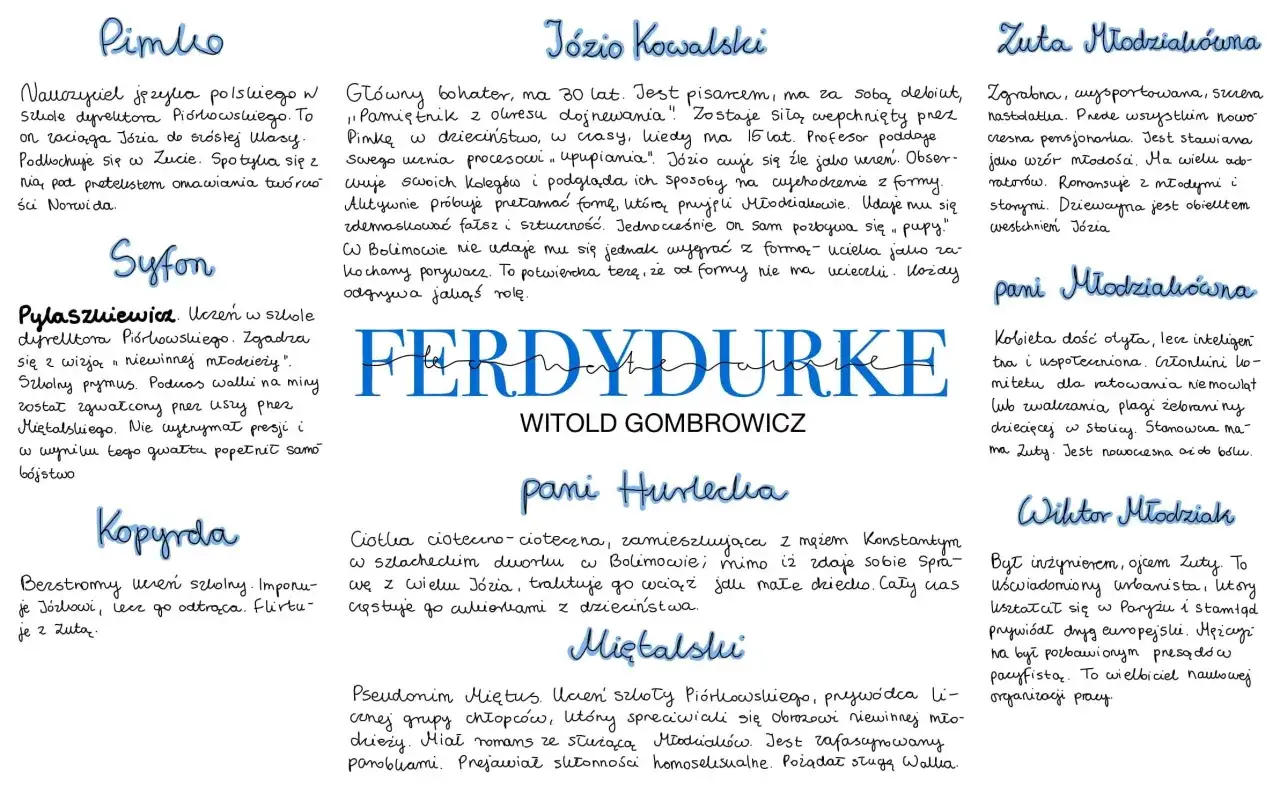 Pimko
Nauczyciel języka polskiego w
szkole dyrektora Piórkowskiego. To
on zaciąga Józia do szóstej klasy.
Podkochuje się w Zucie. Spotyka się z
nią pod pretekstem omawiania twórczo
ści Norwida.
Syfon
Pylaszkiewicz. Uczeń w szkole
dyrektora Piórkowskiego. Zgadza
się z wizją "niewinnej młodzieży".
Szkolny prymus. Podczas walki na miny
został zgwałcony przez uszy przez
Miętalskiego. Nie wytrzymał presji i
w wyniku tego gwałtu popełnił samo
bójstwo
Kopyrda
Bezstromy uczeń szkolny. Imponu-
je Józkowi, lecz go odtrąca. Flirtu-
je z Zutą.
Józio Kowalski
Główny bohater, ma 30 lat. Jest pisarzem, ma za sobą debiut,
"Pamiętnik z okresu dojrzewania". Zostaje siłą wepchnięty przez
Pimkę w dzieciństwo, w czasy, kiedy ma 15 lat. Profesor poddaje
swego ucznia procesowi "upupiania". Józio czuje się źle jako uczeń. Obser-
wuje swoich kolegów i podgląda ich sposoby na wychodzenie z formy.
Aktywnie próbuje przełamać formę, którą przyjęli Młodziakowie. Udaje mu się
zdemaskować fałsz i sztuczność. Jednocześnie on sam pozbywa się "pupy."
W Bolimowie nie udaje mu się jednak wygrać z formą- ucieka jako za-
kochany porywacz. To potwierdza tezę, że od formy nie ma ucieczki. Każdy
odgrywa jakąś rolę.
FERDYDURKE
WITOLD GOMBROWICZ
pani Hurlecka
Ciotka cioteczno-cioteczna, zamieszkująca z mężem Konstantym
w szlacheckim dworku w Bolimowie; mimo iż zdaje sobie spra-
wę z wieku Józia, traktuje go wciąż jak małe dziecko. Cały czas
częstuje go cukierkami z dzieciństwa.
Miętalski
Pseudonim Miętus. Uczeń szkoły Piórkowskiego, przywódca li-
cznej grupy chłopców, którzy sprzeciwiali się obrazowi niewinnej mło-
dzieży. Miał romans ze służącą Młodziaków. Jest zafascynowany
parobkami. Przejawiał skłonności homoseksualne. Pożądał sługę Walka.
Zuta Młodziakówna
Zgrabna, wysportowana, szczera
nastolatka. Przede wszystkim nowo
czesna pensjonarka. Jest stawiana
jako wzór młodości. Ma wielu ado-
ratorów. Romansuje z młodymi i
starymi. Dziewczyna jest obiektem
westchnień Józia
pani Młodziakówna
Kobieta dość otyła, lecz inteligen
tna i uspołeczniona. Członkini ko-
mitetu dla ratowania niemowląt
lub zwalczania plagi żebraniny
dziecięcej w stolicy. Stanowcza ma-
ma Zuty. Jest nowoczesna aż do bólu.
Wiktor Młodziak
Był inżynierem, ojcem Zuty. To
uświadomiony urbanista, który
kształcił się w Paryżu i stamtąd
przywiódł dryg europejski. Mężczyz
na był pozbawionym przesądów
pacyfistą. To wielbiciel naukowej
organizacji pracy.